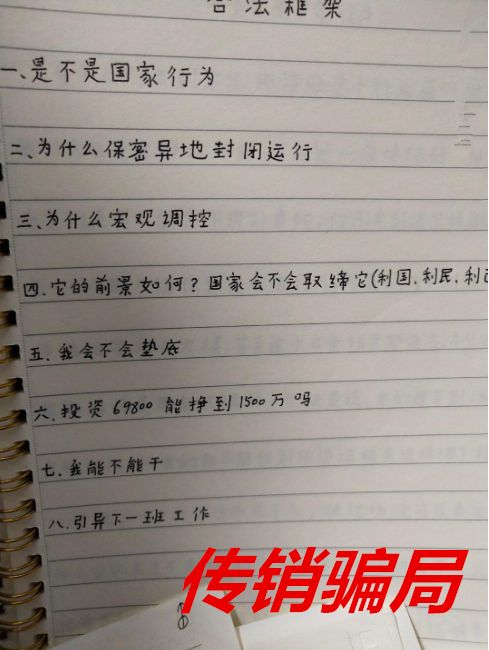 合法框架
一、是不是国家行为
二、为什么保密异地封闭运行
三、为什么宏观调控
四.它的前景如何?国家会不会取缔它(利国.利民.利己
五.我会不会垫底
六.投资69800能挣到1500万吗
七.我能不能干
八.引导下一班工作
传销骗局